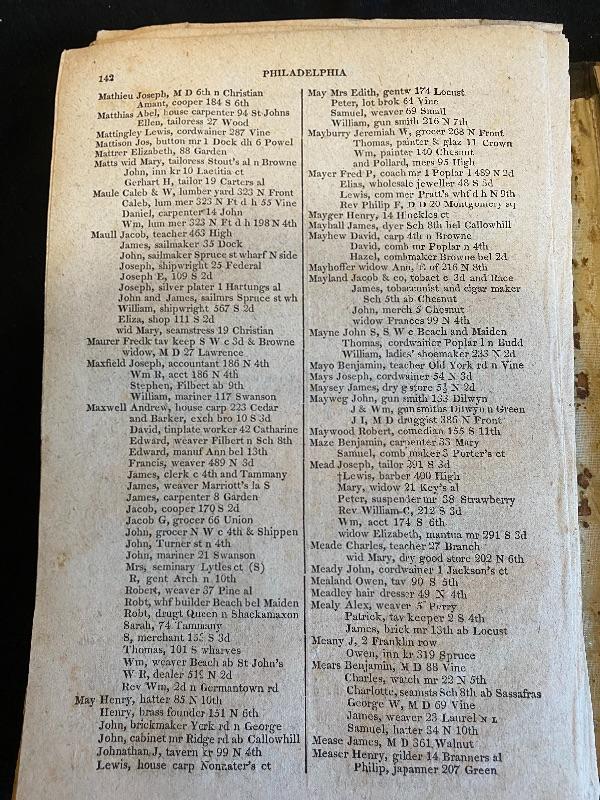 142
PHILADELPHIA
Mathieu Joseph, M D 6th n Christian
Amant, cooper 184 S 6th
Matthias Abel, house carpenter 94 St Johns
Ellen, tailoress 27 Wood
Mattingley Lewis, cordwainer 287 Vine
Mattison Jos, button mr 1 Dock dh 6 Powel
Mattrer Elizabeth, 88 Garden
Matts wid Mary, tailoress Stout's al n Browne
John, inn kr 10 Laetitia ct
Gerhart H, tailor 19 Carters al
Maule Caleb & W, lumber yard 323 N Front
Caleb, lum mer 323 N Ft d h 55 Vine
Daniel, carpenter 14 John
Wm, lum mer 323 N Ft d h 198 N 4th
Maull Jacob, teacher 463 High
James, sailmaker 35 Dock
John, sailmaker Spruce st wharf N side
Joseph, shipwright 25 Federal
Joseph E, 109 S 2d
Joseph, silver plater 1 Hartungs al
John and James, sailmrs Spruce st wh
William, shipwright 567 S 2d
Eliza, shop 111 S 2d
wid Mary, seamstress 19 Christian
Maurer Fredk tav keep S W c 3d & Browne
widow, M D 27 Lawrence
Maxfield Joseph, accountant 186 N 4th
Wm R, acct 186 N 4th
Stephen, Filbert ab 9th
William, mariner 117 Swanson
Maxwell Andrew, house carp 223 Cedar
and Barker, exch bro 10 S 3d
David, tinplate worker 42 Catharine
Edward, weaver Filbert n Sch 8th
Edward, manuf Ann bel 13th
Francis, weaver 489 N 3d
James, clerk c 4th and Tammany
James, weaver Marriott's la S
James, carpenter 8 Garden
Jacob, cooper 170 S 2d
Jacob G, grocer 66 Union
John, grocer N W c 4th & Shippen
John, Turner st n 4th
John, mariner 21 Swanson
Mrs, seminary Lytles ct (S)
R, gent Arch n 10th
Robert, weaver 37 Pine al
Robt, whf builder Beach bel Maiden
Robt, drugt Queen n Shackamaxon
Sarah, 74 Tammany
S, merchant S 3d
Thomas, 101 S wharves
Wm, weaver Beach ab St John's
W R, dealer 519 N 2d
Rev Wm, 2d n Germantown rd
May Henry, hatter 85 N 10th
Henry, brass founder 151 N 6th
John, brickmaker York rd n George
John, cabinet mr Ridge rd ab Callowhill
Johnathan J, tavern kr 99 N 4th
Lewis, house carp Nonnater's ct
May Mrs Edith, gentw 174 Locust
Peter, lot brok 64 Vine
Samuel, weaver 69 Small
William, gun smith 216 N 7th
Mayburry Jeremiah W, grocer 268 N Front
Thomas, painter & glaz 11 Crown
Wm, painter 140 Chesnut
and Pollard, mers 95 High
Mayer Fred P, coach mr 1 Poplar l 489 N 2d
Elias, wholesale jeweller 48 S 3d
Lewis, com mer Pratt's whf d h N 9th
Rev Philip F, D D 20 Montgomery sq
Mayger Henry, 14 Hinckles ct
Mayhall James, dyer Sch 8th bel Callowhill
Mayhew David, carp 4th n Browne
David, comb mr Poplar n 4th
Hazel, combmaker Browne bel 2d
Mayhoffer widow Ann, E of 216 N 8th
Mayland Jacob & co, tobact c 3d and Race
James, tobacconist and cigar maker
Sch 5th ab Chesnut
John, merch 5 Chesnut
widow Frances 99 N 4th
Mayne John S, S W c Beach and Maiden
Thomas, cordwainer Poplar l n Budd
William, ladies' shoemaker 233 N 2d
Mayo Benjamin, teacher Old York rd n Vine
Mays Joseph, cordwainer 54 N 3d
Maysey James, dry g store 5½ N 2d
Mayweg John, gun smith 133 Dilwyn
J & Wm, gun smiths Dilwyn n Green
J I, M D druggist 386 N Front
Maywood Robert, comedian 155 S 11th
Maze Benjamin, carpenter 33 Mary
Samuel, comb maker 3 Porter's ct
Mead Joseph, tailor 291 S 3d
†Lewis, barber 400 High
Mary, widow 21 Key's al
Peter, suspender mr 38 Strawberry
Rev William C, 212 S 3d
Wm, acct 174 S 6th
widow Elizabeth, mantua mr 291 S 3d
Meade Charles, teacher 27 Branch
wid Mary, dry good store 202 N 6th
Meady John, cordwainer 1 Jackson's ct
Mealand Owen, tav 90 S 5th
Meadley hair dresser 49 N 4th
Mealy Alex, weaver 5 Perry
Patrick, tav keeper 2 S 4th
James, brick mr 13th ab Locust
Meany J, 2 Franklin row
Owen, inn kr 319 Spruce
Mears Benjamin, M D 88 Vine
Charles, watch mr 22 N 5th
Charlotte, seamsts Sch 8th ab Sassafras
George W, M D 69 Vine
James, weaver 23 Laurel N L
Samuel, hatter 34 N 10th
Mease James, M D 361 Walnut
Measer Henry, gilder 14 Branners al
Philip, japanner 207 Green